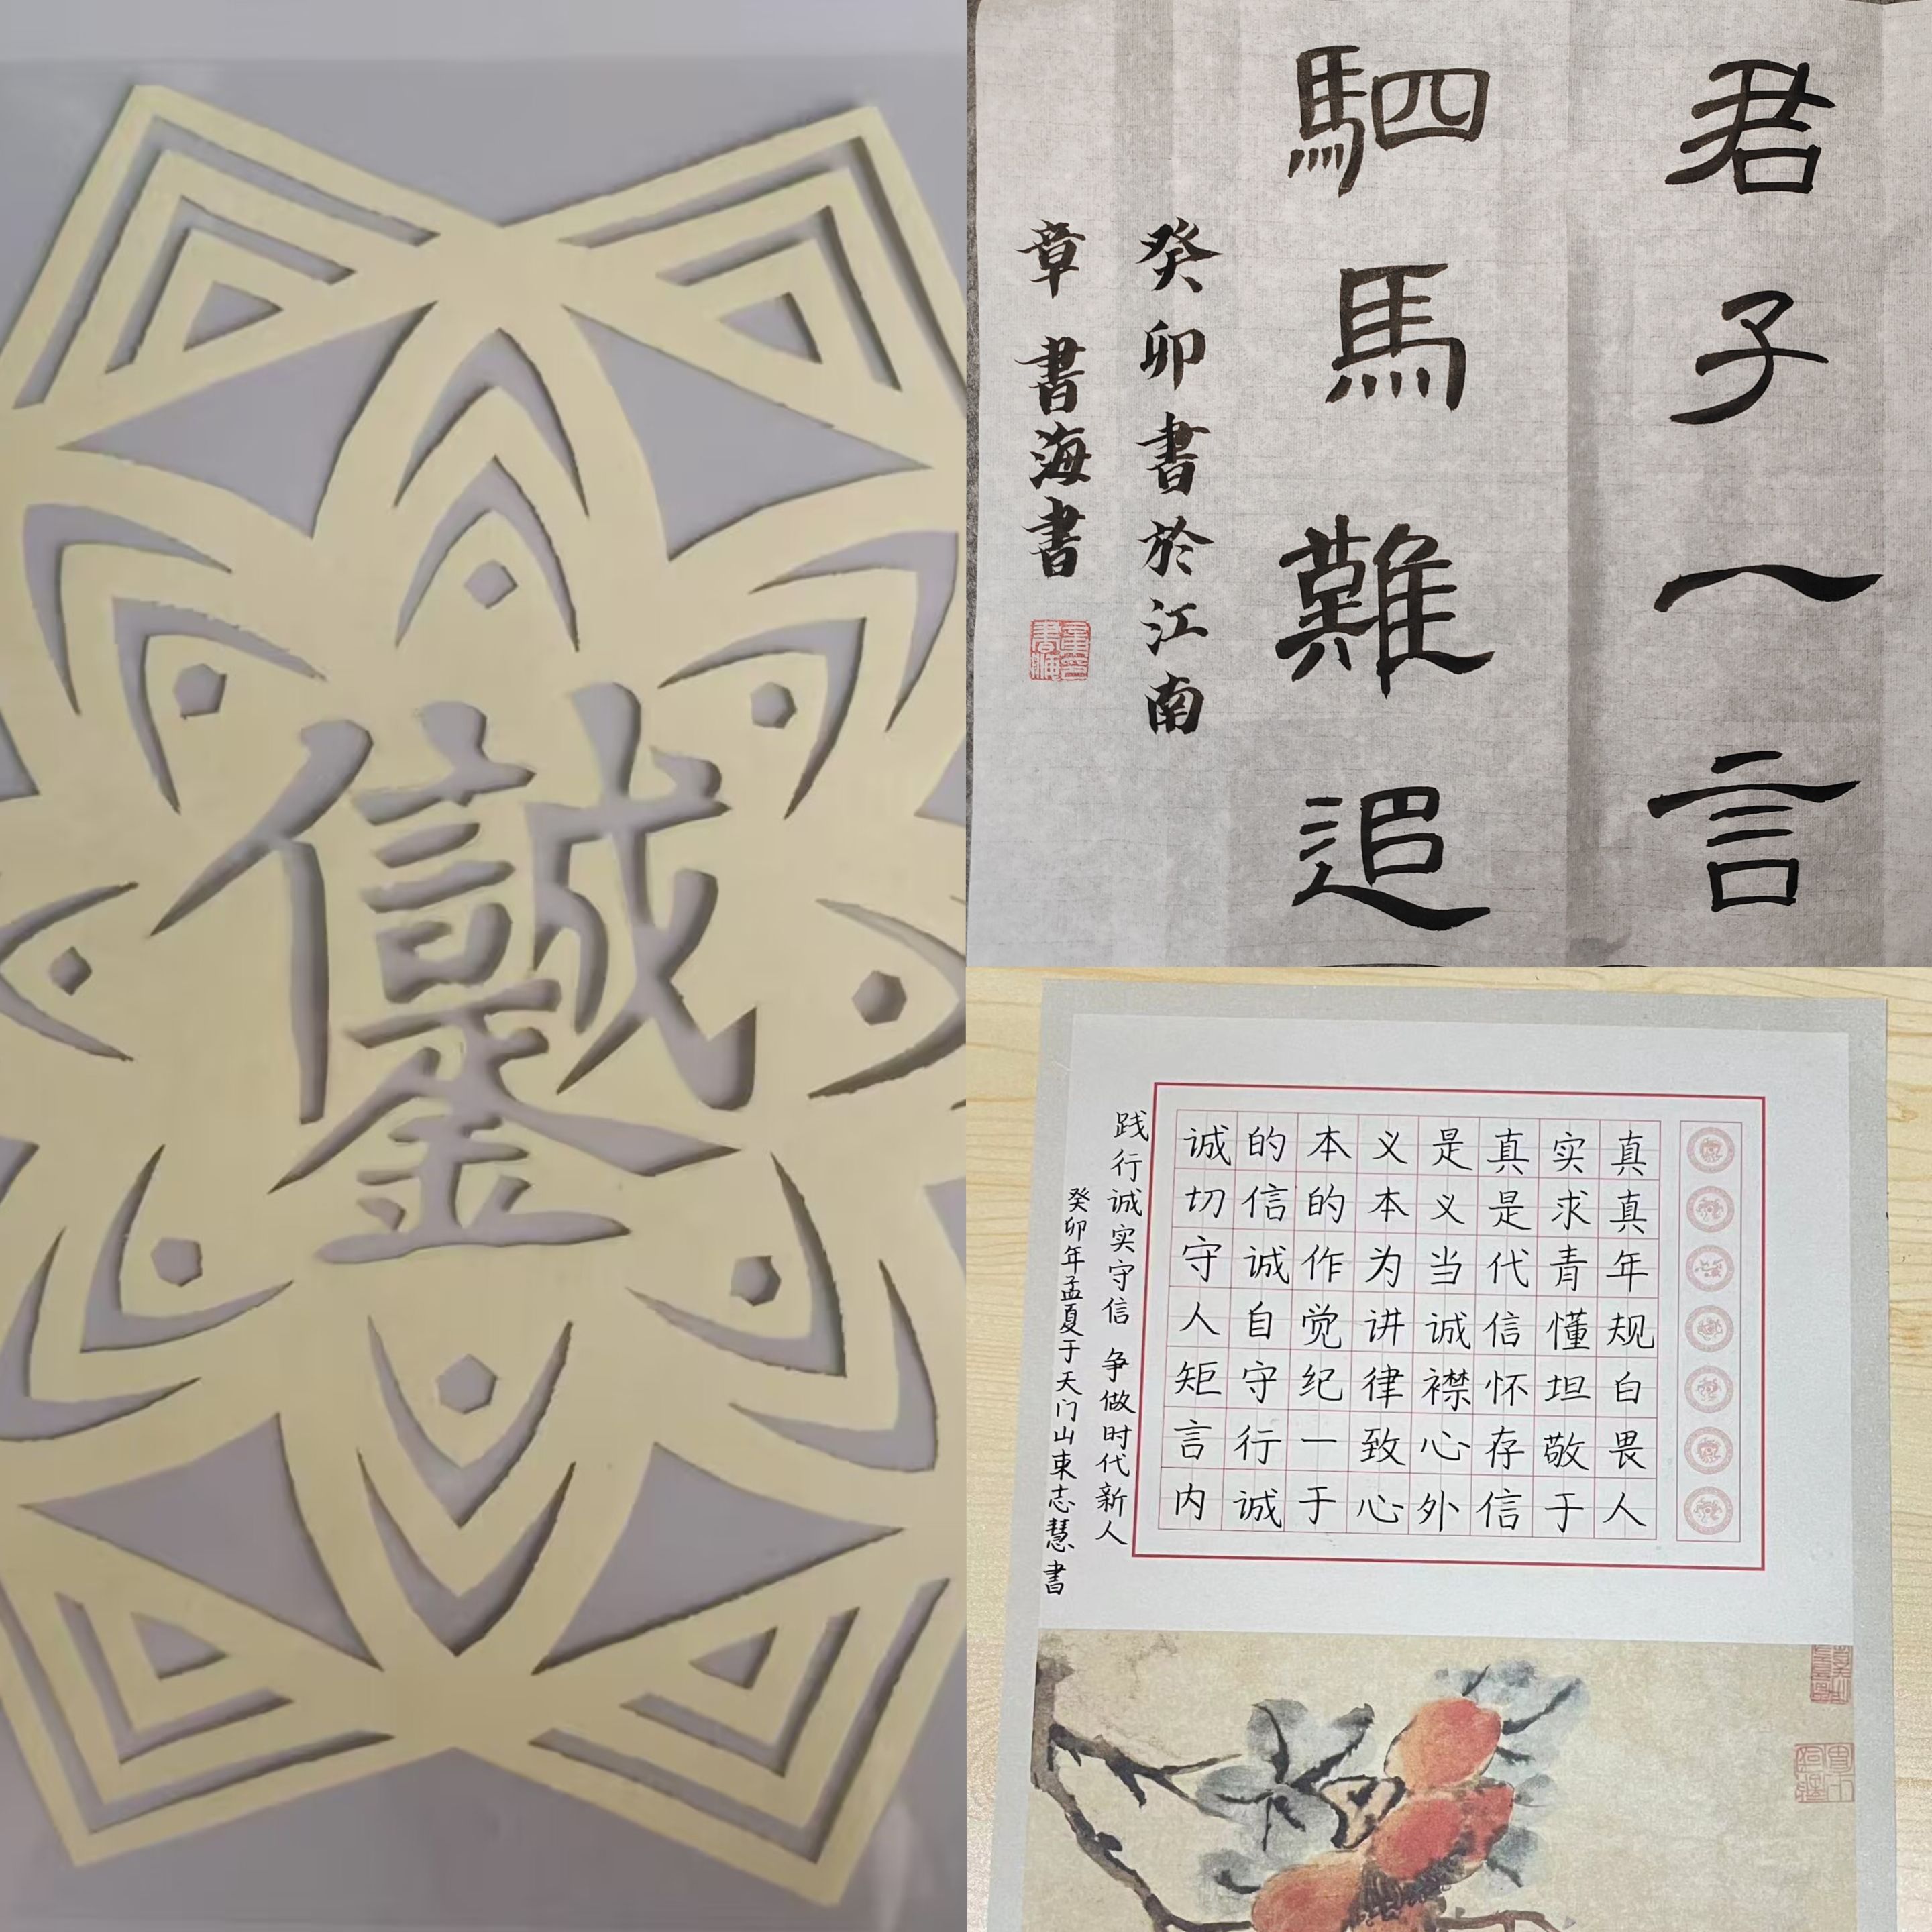 诚信是金
君子一言
駟馬難追
癸卯書於江南
章書海書
诚的本义是真实真
切信的本义是求真
守诚作为当代青年
人自觉讲诚信懂规
矩守纪律襟怀坦白
言行一致心存敬畏
内诚于心外信于人
践行诚实守信 争做时代新人
癸卯年孟夏于天门山束志慧書